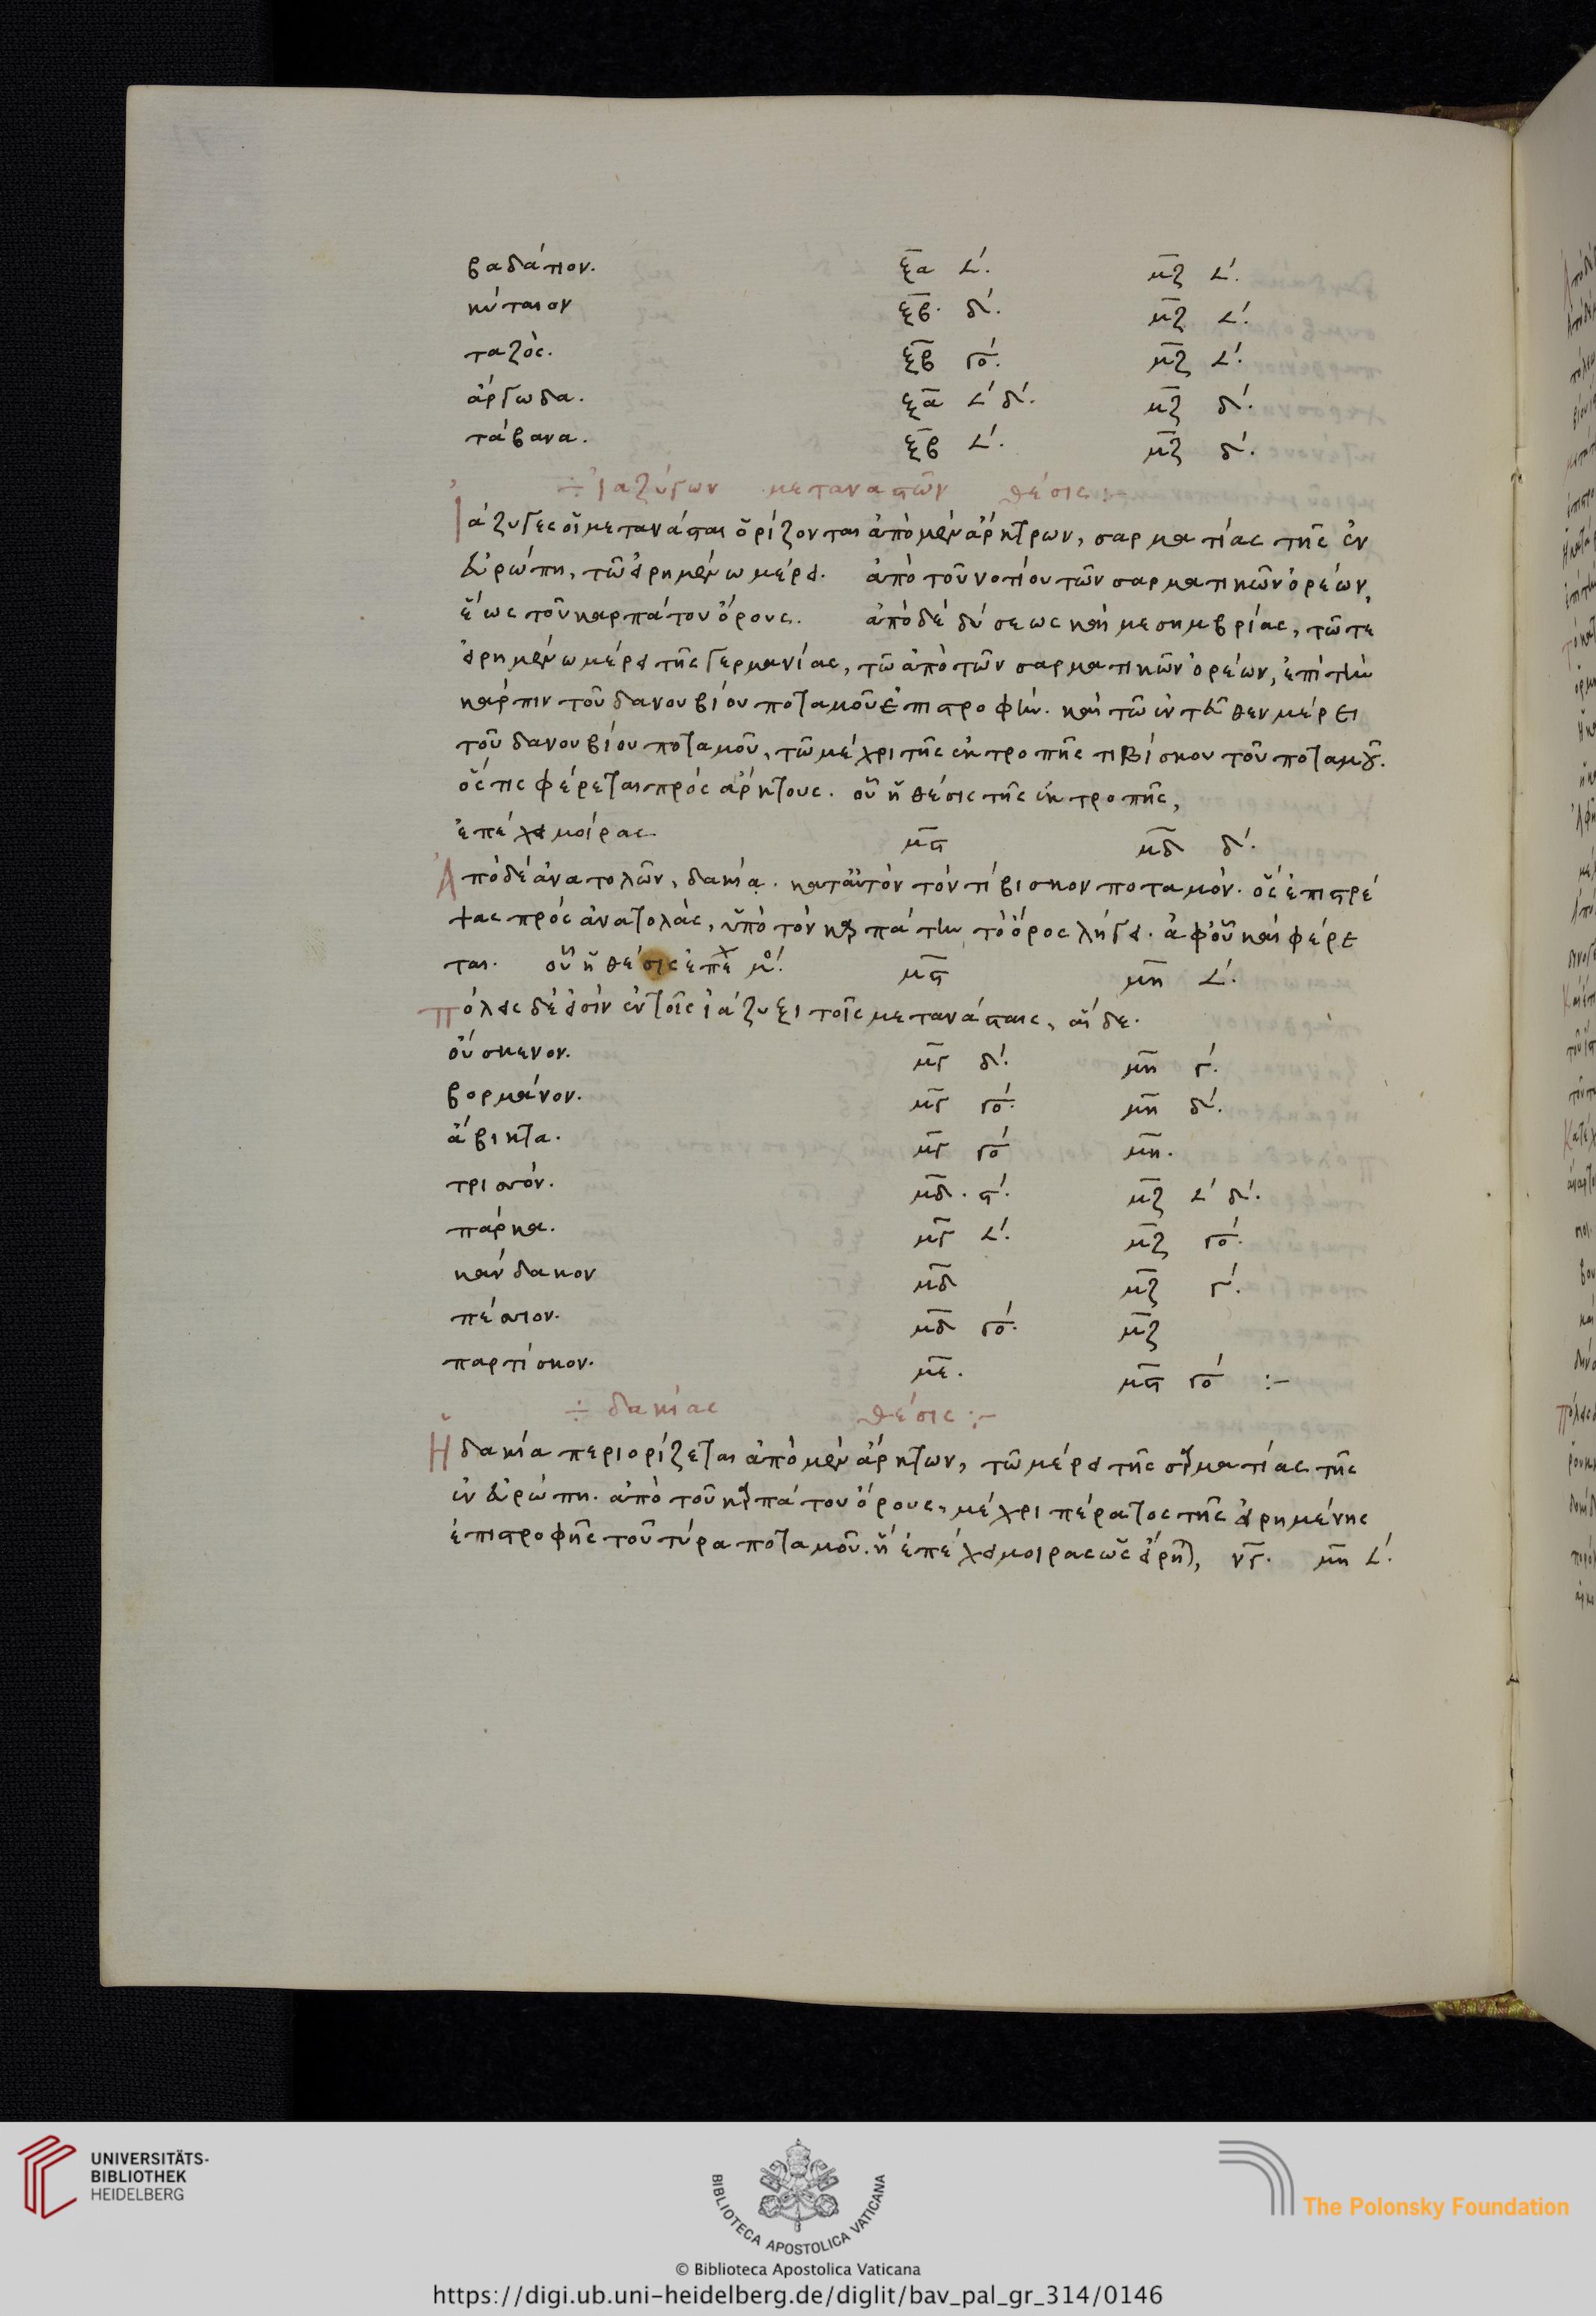 βαδάτιον. ξ̅α̅ 𐅵΄. μ̅ζ̅ 𐅵΄.
κύταιον ξ̅β̅. δ΄. μ̅ζ̅ 𐅵΄.
ταζὸς. ξ̅β̅ γο΄. μ̅ζ̅ 𐅵΄.
ἄργωδα. ξ̅α̅ 𐅵΄ δ΄. μ̅ζ̅ δ΄.
τάβανα. ξ̅β̅ 𐅵΄. μ̅ζ̅ δ΄.
÷ ἰαζύγων μεταναστῶν θέσις :-
Ἰάζυγες οἱ μετανάσται ὁρίζονται ἀπὸ μὲν ἄρκτρων, σαρματίας τῆς ἐν
εὐρώπη, τῶ εἰρημένω μέρει. ἀπὸ τοῦ νοτίου τῶν σαρματικῶν ὀρέων,
ἕως τοῦ καρπάτου ὄρους. ἀπὸ δὲ δύσεως καὶ μεσημβρίας, τῶ τε
εἰρημένω μέρει τῆς γερμανίας, τῶ ἀπὸ τῶν σαρματικῶν ὀρέων, ἐπὶ τὴν
κάρπιν τοῦ δανουβίου ποταμοῦ ἐπιστροφήν. καὶ τῶ ἐντεῦθεν μέρει
τοῦ δανουβίου ποταμοῦ, τῶ μέχρι τῆς ἐκτροπῆς τιβίσκου τοῦ ποταμοῦ.
ὅστις φέρεται πρὸς ἄρκτους. οὗ ἡ θέσις τῆς ἐκτροπῆς,
ἐπέχει μοίρας μ̅ϛ̅ μ̅δ̅ δ΄.
Ἀπὸ δὲ ἀνατολῶν, δακία. κατ αὐτὸν τὸν τίβισκον ποταμόν. ὃς ἐπιστρέ
ψας πρὸς ἀνατολὰς, ὑπὸ τὸν καρπάτην τὸ ὄρος λήγει. ἀφ οὗ καὶ φέρε
ται. οὗ ἡ θέσις ἐπέχ μο΄ μ̅ϛ̅ μ̅η̅ 𐅵΄.
Πόλεις δὲ εἰσὶν ἐν τοῖς ἰάζυξι τοῖς μετανάσταις, αἵδε.
οὔσκενον. μ̅γ̅ δ΄. μ̅η̅ γ΄.
βορμάνον. μ̅γ̅ γο΄. μ̅η̅ δ΄.
ἄβιντα. μ̅γ̅ γο΄ μ̅η̅.
τρισσόν. μ̅δ̅. ϛ΄. μ̅ζ̅ 𐅵΄ δ΄.
πάρκα. μ̅γ̅ 𐅵΄. μ̅ζ̅ γο΄.
κάνδακον μ̅δ̅ μ̅ζ̅ γ΄.
πέσσιον. μ̅δ̅ γο΄. μ̅ζ̅
παρτίσκον. μ̅ε̅. μ̅ϛ̅ γο΄ :-
÷ δακίας θέσις :-
Ἡ δακία περιορίζεται ἀπὸ μὲν ἄρκτων, τῶ μέρει τῆς σαρματίας τῆς
ἐν εὐρώπη. ἀπὸ τοῦ καρπάτου ὄρους, μέχρι πέρατος τῆς εἰρημένης
ἐπιστροφῆς τοῦ τύρα ποταμοῦ. ἣ ἐπέχει μοιρας ὡς εἴρηται, ν̅γ̅. μ̅η̅ 𐅵΄.
UNIVERSITÄTS-
BIBLIOTHEK
HEIDELBERG
BIBLIOTECA APOSTOLICA VATICANA
The Polonsky Foundation
© Biblioteca Apostolica Vaticana
https://digi.ub.uni-heidelberg.de/diglit/bav_pal_gr_314/0146